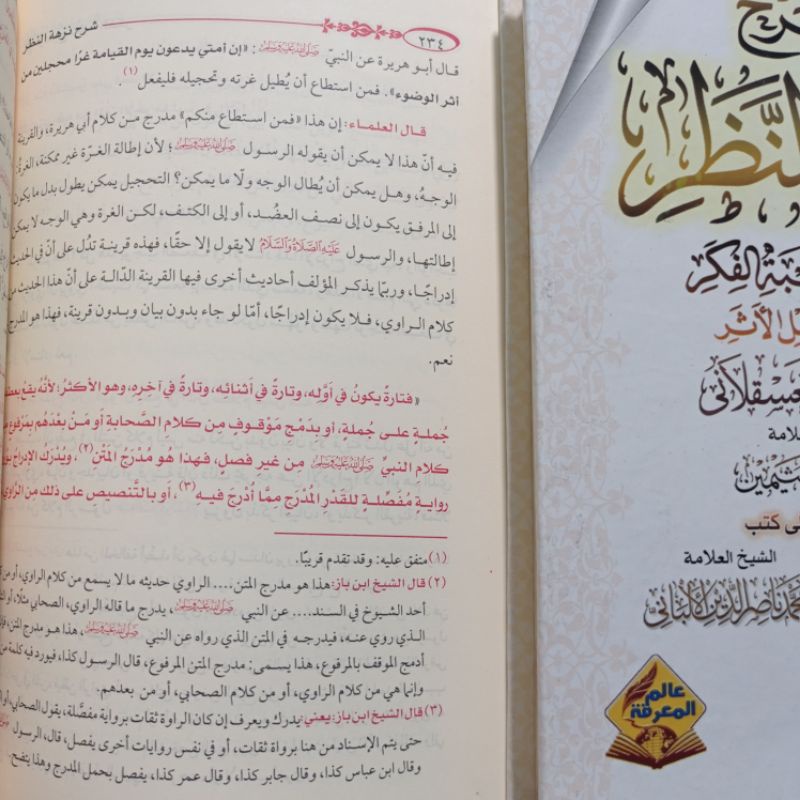 ٢٣٤
شرح نزهة النظر
قال أبو هريرة عن النبيّ ﷺ: «إن أمتي يدعون يوم القيامة غرًا محجلين من
أثر الوضوء». فمن استطاع أن يُطيل غرته وتحجيله فليفعل(١).
قال العلماء: إن هذا «فمن استطاع منكم» مدرج من كلام أبي هريرة، والقرينة
فيه أنّ هذا لا يمكن أن يقوله الرسول ﷺ؛ لأن إطالة الغرّة غير ممكنة، الغرة:
الوجهُ، وهل يمكن أن يُطال الوجه ولّا ما يمكن؟ التحجيل يمكن يطول بدل ما يكون
إلى المرفق يكون إلى نصف العضُد، أو إلى الكتف، لكن الغرة وهي الوجه لا يمكن
إطالتها، والرسول عَلَيْهِ الصَّلَاةُ وَالسَّلَامُ لا يقول إلا حقًا، فهذه قرينة تدُل على أنّ في الحديث
إدراجًا، وربّما يذكر المؤلف أحاديث أخرى فيها القرينة الدّالة على أنّ هذا الحديث من
كلام الراوي، فلا يكون إدراجًا، أمّا لو جاء بدون بيان وبدون قرينة، فهذا هو المدرج
نعم.
«فتارةً يكونُ في أوَّله، وتارةً في أثنائِه، وتارةً في آخِرِه، وهو الأكثرُ؛ لأنَّهُ يقعُ بعطف
جُملةٍ على جُملةٍ، أو بدَمْجِ مَوْقوفٍ مِن كلامِ الصَّحابةِ أو مَنْ بعْدَهُم بِمَرْفوعٍ من
كلامِ النبيِّ ﷺ مِن غيرِ فصلٍ، فهذا هُو مُدْرَجُ المَتْنِ(٢)، ويُدْرَكُ الإدراجُ
روايةٍ مُفَصِّلةٍ للقَدْرِ المُدْرَجِ مِمّا أُدْرِجَ فيهِ(٣)، أو بالتَّنصيصِ على ذلك مِن الرَّاوي
(١) متفق عليه: وقد تقدم قريبًا.
(٢) قال الشيخ ابن باز: هذا هو مدرج المتن.... الراوي حديثه ما لا يسمع من كلام الراوي، أو من
أحد الشيوخ في السند.... عن النبي ﷺ، يدرج ما قاله الراوي، الصحابي مثلًا، أو
الذي روي عنه، فيدرجه في المتن الذي رواه عن النبي ﷺ، هذا هو مدرج المتن،
أدمج الموقف بالمرفوع، هذا يسمى: مدرج المتن المرفوع، قال الرسول كذا، فيورد فيه كلمة
وإنما هي من كلام الراوي، أو من كلام الصحابي، أو من بعدهم.
(٣) قال الشيخ ابن باز: يعني: يدرك ويعرف إن كان الراوة ثقات برواية مفصَّلة، يقول الصحابي، أو
حتى يتم الإسناد من هنا برواة ثقات، أو في نفس روايات أخرى يفصل، قال، الرسول
وقال ابن عباس كذا، وقال جابر كذا، وقال عمر كذا، يفصل بحمل المدرج وهذا يتضح.
النَّظَرِ
الفِكَرِ
الأَثَرِ
الشيخ العلامة
محمد ناصر الدين الألباني
عالم
المعرفة